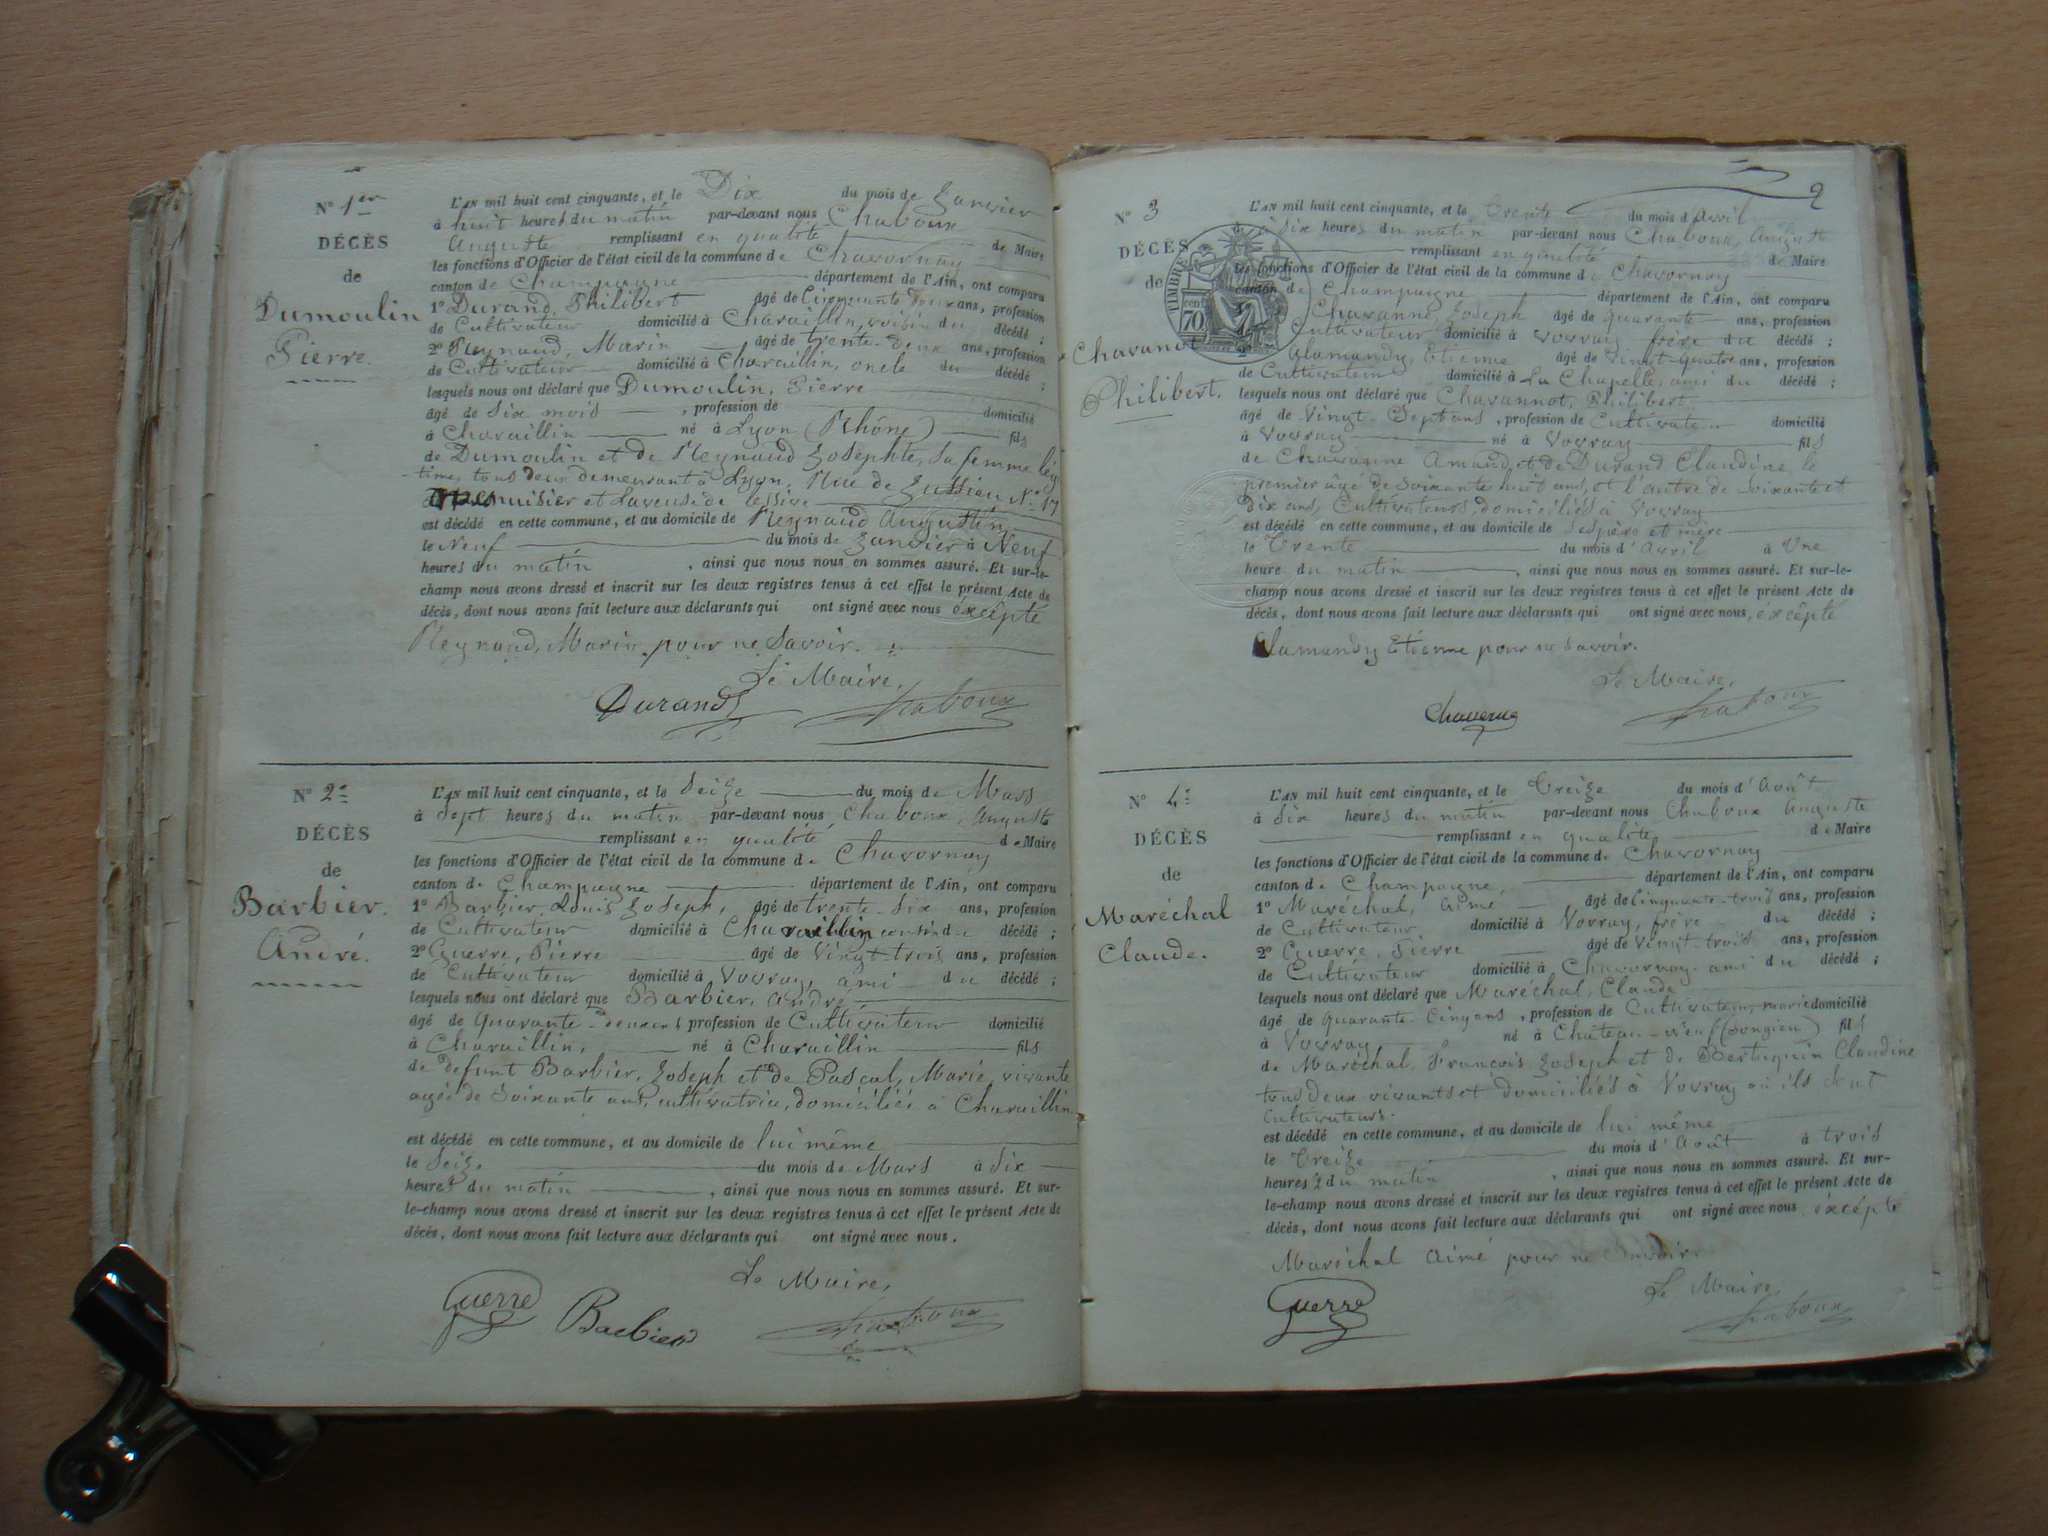 N° 1er
DÉCÈS
de
Dumoulin
Pierre.
L'AN mil huit cent cinquante, et le Dix du mois de Janvier
à huit heures du matin par-devant nous Chaboux
Auguste remplissant en qualité de Maire
les fonctions d'Officier de l'état civil de la commune de Chavornay
canton de Champagne département de l'Ain, ont comparu
1° Durand, Philibert âgé de Cinquante deux ans, profession
de Cultivateur domicilié à Charaillin, voisin du décédé ;
2° Reynaud, Marin âgé de trente-deux ans, profession
de Cultivateur domicilié à Charaillin, oncle du décédé ;
lesquels nous ont déclaré que Dumoulin, Pierre
âgé de Six mois , profession de domicilié
à Charaillin né à Lyon (Rhône) fils
de Dumoulin et de Reynaud Josephte, sa femme légi
-time, tous deux demeurant à Lyon, Rue de Jussieu N° 17
menuisier et laveuse de lessive
est décédé en cette commune, et au domicile de Reynaud Augustin
le Neuf du mois de Janvier à Neuf
heures du matin , ainsi que nous nous en sommes assuré. Et sur-le-
champ nous avons dressé et inscrit sur les deux registres tenus à cet effet le présent Acte de
décès, dont nous avons fait lecture aux déclarants qui ont signé avec nous éxcêpté
Reynaud, Marin pour ne Savoir.
Le Maire,
Durand Chaboux
N° 2e
DÉCÈS
de
Barbier.
André.
L'AN mil huit cent cinquante, et le Seize du mois de Mars
à Sept heures du matin par-devant nous Chaboux, Auguste
remplissant en qualité de Maire
les fonctions d'Officier de l'état civil de la commune de Chavornay
canton de Champagne département de l'Ain, ont comparu
1° Barbier Louis Joseph, âgé de trente-Six ans, profession
de Cultivateur domicilié à Charaillin cousin du décédé ;
2° Guerre, Pierre âgé de Vingt-trois ans, profession
de Cultivateur domicilié à Vovray, ami du décédé ;
lesquels nous ont déclaré que Barbier, André
âgé de Quarante-deux ans profession de Cultivateur domicilié
à Charaillin, né à Charaillin fils
de défunt Barbier, Joseph et de Pascal, Marie, vivante
agée de Soixante ans, cultivatrice, domiciliée à Charaillin
est décédé en cette commune, et au domicile de lui même
le Seize du mois de Mars à Six
heures du matin , ainsi que nous nous en sommes assuré. Et sur-
le-champ nous avons dressé et inscrit sur les deux registres tenus à cet effet le présent Acte de
décès, dont nous avons fait lecture aux déclarants qui ont signé avec nous.
Le Maire,
Guerre Barbier Chaboux
2
N° 3
DÉCÈS
de
Chavanot
Philibert.
TIMBRE
cent 70
L'AN mil huit cent cinquante, et le Trente du mois d'Avril
à Six heures du matin par-devant nous Chaboux, Auguste
remplissant en qualité de Maire
les fonctions d'Officier de l'état civil de la commune de Chavornay
canton de Champagne département de l'Ain, ont comparu
Chavanne, Joseph âgé de quarante ans, profession
Cultivateur domicilié à Vovray frère du décédé ;
Alamandy, Etienne âgé de Vingt-quatre ans, profession
de Cultivateur domicilié à La Chapelle, ami du décédé ;
lesquels nous ont déclaré que Chavannot, Philibert
âgé de Vingt-Sept ans , profession de Cultivateur domicilié
à Vovray né à Vovray fils
de Chavanne Amand, et de Durand Claudine, le
premier âgé de Soixante huit ans, et l'autre de Soixante et
Dix ans, Cultivateurs, domiciliés à Vovray
est décédé en cette commune, et au domicile de ses père et mère
le Trente du mois d'avril à Une
heure du matin , ainsi que nous nous en sommes assuré. Et sur-le-
champ nous avons dressé et inscrit sur les deux registres tenus à cet effet le présent Acte de
décès, dont nous avons fait lecture aux déclarants qui ont signé avec nous, éxcêpté
Alamandy Etienne pour ne Savoir.
Le Maire,
Chavanne Chaboux
N° 4e
DÉCÈS
de
Maréchal
Claude.
L'AN mil huit cent cinquante, et le Treize du mois d'Août
à Six heures du matin par-devant nous Chaboux Auguste
remplissant en qualité de Maire
les fonctions d'Officier de l'état civil de la commune de Chavornay
canton de Champagne, département de l'Ain, ont comparu
1° Maréchal, Aimé âgé de Cinquante-trois ans, profession
de Cultivateur domicilié à Vovray, frère du décédé ;
2° Guerre, Pierre âgé de Vingt-trois ans, profession
de Cultivateur domicilié à Chavornay ami du décédé ;
lesquels nous ont déclaré que Maréchal, Claude
âgé de Quarante-Cinq ans , profession de Cultivateur, marié domicilié
à Vovray né à Château-neuf (Songieu) fils
de Maréchal, François Joseph et de Claudine
tous Deux vivants et domiciliés à Vovray où ils sont
Cultivateurs.
est décédé en cette commune, et au domicile de lui même
le Treize du mois d'Août à trois
heures du matin , ainsi que nous nous en sommes assuré. Et sur-
le-champ nous avons dressé et inscrit sur les deux registres tenus à cet effet le présent Acte de
décès, dont nous avons fait lecture aux déclarants qui ont signé avec nous éxcépté
Maréchal Aimé pour ne Savoir.
Le Maire,
Guerre Chaboux